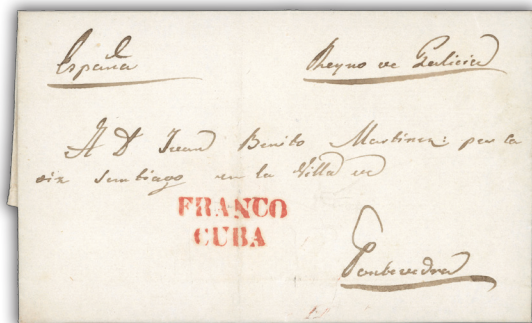 España Reyno de Galicia
A Dn Juan Benito Martinez: por la
via Santiago en la Villa de
FRANCO
CUBA
Pontevedra